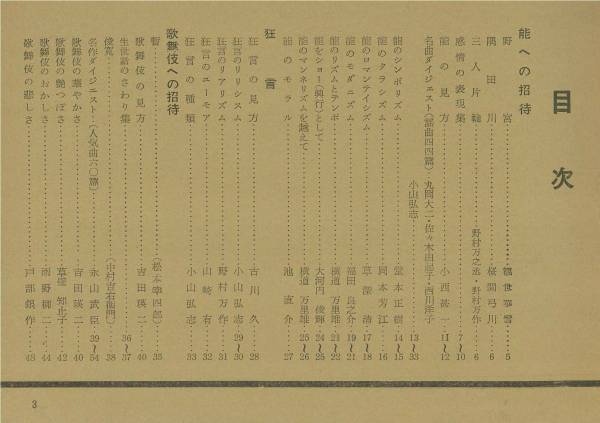 目次
能への招待
野宮……観世華雪…5
隅田川……桜間弓川…6
三人片輪……野村万之丞・野村万作…6
感情の表現集……7〜10
能の見方……小西甚一…11〜12
名曲ダイジェスト(謡曲四四篇)・丸岡大二・佐々木由起子・西川洋子
小山弘志…13〜33
能のシンボリズム……堂本正樹…14〜15
能のクラシズム……岡本芳江…16
能のロマンティシズム……草深清…17〜18
能のモダニズム……福田良之介…19〜21
能のリズムとテンポ……横道万里雄…21〜22
能をショー(興行)として……大河内俊輝…24〜25
能のマンネリズムを越えて……横道万里雄…25〜26
能のモラル……池直介…27
狂言
狂言の見方……古川久…28
狂言のリリシズム……小山弘志…29〜30
狂言のリアリズム……野村万作…31
狂言のユーモア……山崎有一郎…32
狂言の種類……小山弘志…33
歌舞伎への招待
暫……(松本幸四郎)…35
歌舞伎の見方……吉田暎二…40
生世話のさわり集……36〜37
俊寛……(中村吉右衛門)…38
名作ダイジェスト(人気曲六〇篇)……永山武臣…39〜54
歌舞伎の華やかさ……吉田暎二…40
歌舞伎の艶っぽさ……知止子…42
歌舞伎のおかしさ……雨野柳二…44
歌舞伎の悲しさ……戸部銀作…48
3